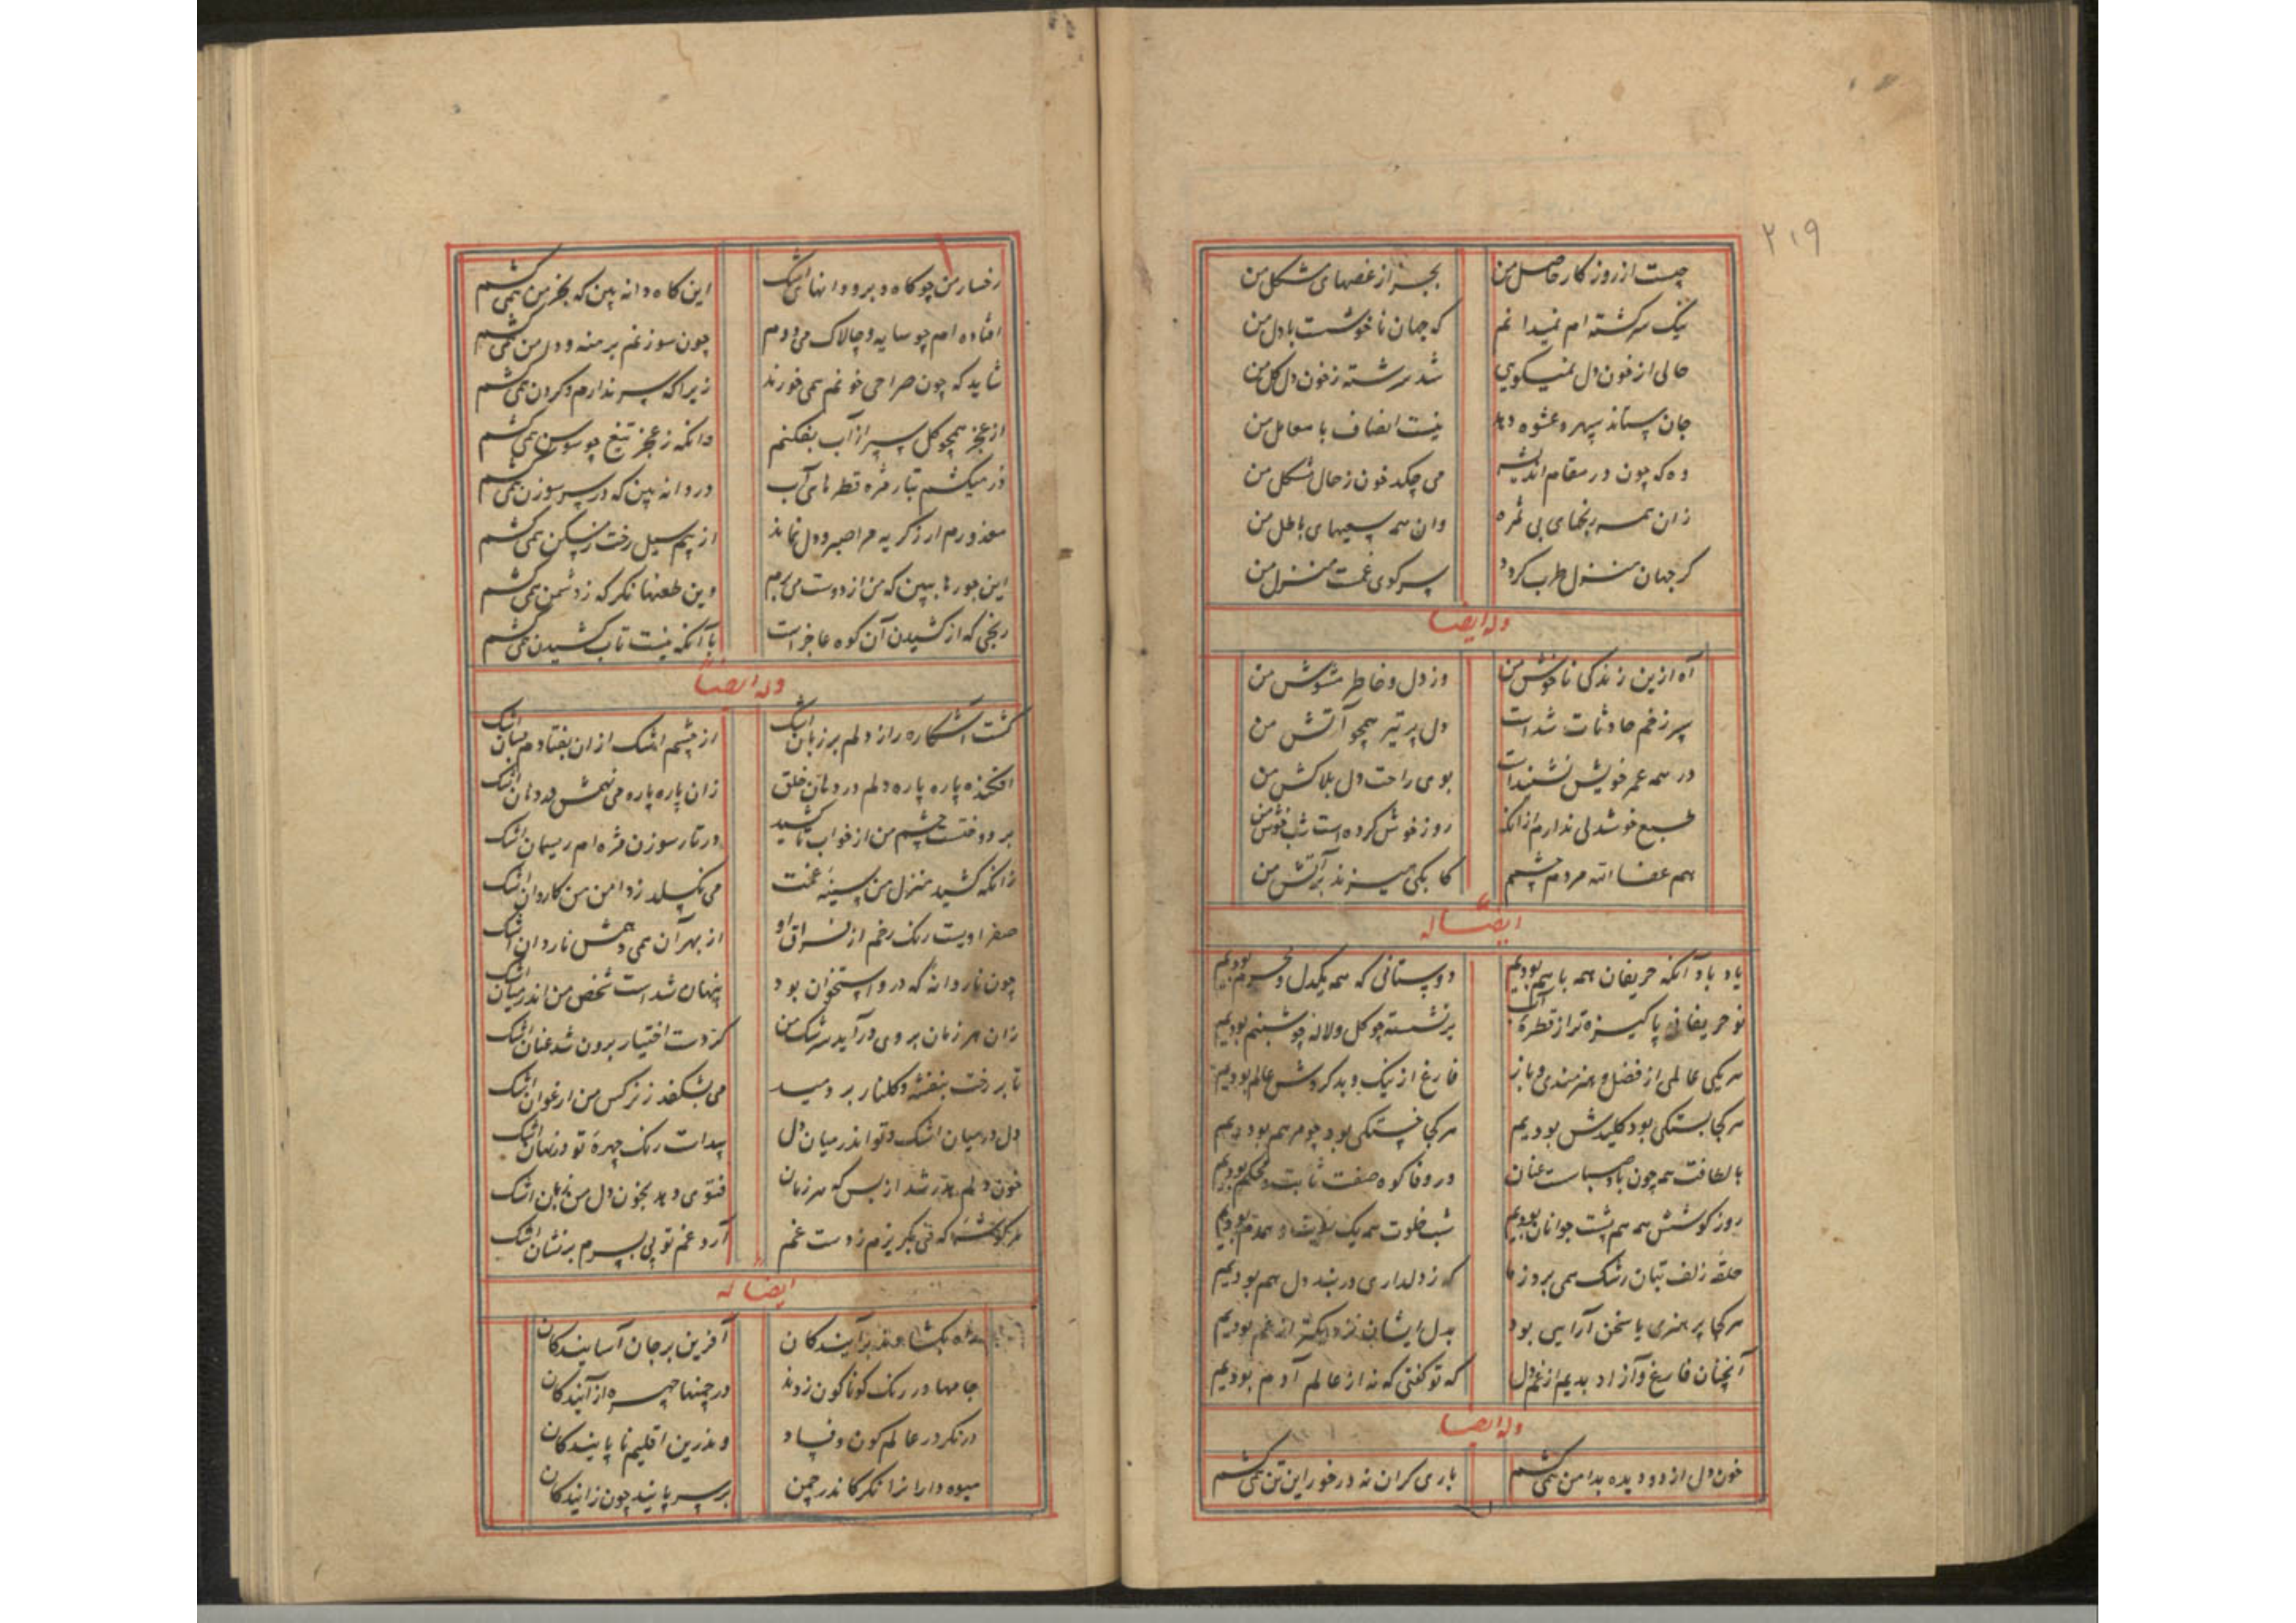 ۲۱۹
چیست از روزکار حاصل من
بجز از غصهای مشکل من
نیک سرکشته ام نمیدانم
که جهان ناخوشست با دل من
حالی از خون دل نمیکویی
شد سرشته ز خون دل کل من
جان ستاند سپهر و عشوه دهد
نیست انصاف با معامل من
وه که چون در مقام اندیشه
می چکد خون ز حال مشکل من
زان همه رنجهای بی ثمره
وان همه سعیهای باطل من
کر جهان منزل طرب کردد
سر کوی غمت منزل من
وله ایضا
آه ازین زندکی ناخوش من
وز دل و خاطر مشوش من
سپر زخم حادثات شدست
دل پر تیر همچو آتش من
در همه عمر خویش نشنیدست
بوی راحت دل بلاکش من
طبع خوشدلی ندارم از آنک
روز خوش کرده است شب خوش من
هم عفا الله مردم چشم
کابکی میزند بر آتش من
ایضا له
یاد باد آنکه حریفان همه با هم بودیم
دوستانی که همه یکدل و محرم بودیم
نو حریفان پاکیزه تر از قطره آب
برنشسته چو کل و لاله چو شبنم بودیم
هر یکی عالمی از فضل و هنرمندی و باز
فارغ از نیک و بد کردش عالم بودیم
هر کجا بستکی بود کلیدش بودیم
هر کجا خستکی بود چو مرهم بودیم
با لطافت همه چون باد صبا سست عنان
در وفا کوه صفت ثابت و محکم بودیم
روز کوشش همه هم پشت جوانان بودیم
شب خلوت همه یک و همدم بودیم
حلقه زلف بتان رشک همی برد ز ما
که ز دلداری در بند دل هم بودیم
هر کجا پر هنری یا سخن آرایی بود
بدل ایشان نزدیکتر از غم بودیم
آنچنان فارغ و آزاد بدیم از غم دل
که تو کفتی که نه از عالم آدم بودیم
وله ایضا
خون دل از دو دیده بدامن همی کشم
باری کران نه در خور این تن همی کشم
رخسار من چو کاه و برو دانهای اشک
این کاه و دانه بین که بخرمن همی کشم
افتاده ام چو سایه و چالاک می دوم
چون سوزنم برهنه و دامن همی کشم
شاید که چون صراحی خونم همی خورند
زیرا که سر ندارم و کردن همی کشم
از عجز همچو کل سپر از آب بفکنم
وانکه ز عجز تیغ چو سوسن همی کشم
در میکشم بتار مژه قطرهای آب
در دانه بین که در سر سوزن همی کشم
معذورم ار ز کریه مرا صبر و دل نماند
از بیم سیل رخت ز مسکن همی کشم
این جورها ببین که من از دوست می برم
وین طعنها نکر که ز دشمن همی کشم
رنجی که از کشیدن آن کوه عاجزست
با آنکه نیست تاب کشیدن همی کشم
وله ایضا
کشت آشکاره راز دلم بر زبان اشک
از چشم اشک از ان بفتادم بسان اشک
افکنده پاره پاره دلم در دهان خلق
زان پاره پاره می نهمش در دهان اشک
بر دوختست چشم من از خواب تا کشید
در تار سوزن مژه ام ریسمان اشک
زانکه کشید منزل من سینه غمت
می نکسلد ز دامن من کاروان اشک
صفراویست رنک رخم از فراق او
از بهر آن همی دهمش ناردان اشک
چون ناردانه که در و استخوان بود
پنهان شدست شخص من اندر میان اشک
زان هر زمان بروی درآید سرشک من
کز دست اختیار برون شد عنان اشک
تا بر رخت بنفشه و کلنار بر دمید
می بشکفد ز نرکس من ارغوان اشک
دل در میان اشک و تو اندر میان دل
پیداست رنک چهره تو در نهان اشک
خون دلم هدر شد از بس که هر زمان
فتوی دهد بخون دل من زبان اشک
هر کوشه که بکریزم ز دست غم
آرد غم تو پی بسرم بر نشان اشک
ایضا له
آیندکان
آفرین بر جان آسایندکان
جامها در رنک کوناکون زدند
در چمنها چهره آرایندکان
درنکر در عالم کون و فساد
و بدرین اقلیم ناپایندکان
میوه داران را نکر کاندر چمن
بر سر پایند چون زایندکان